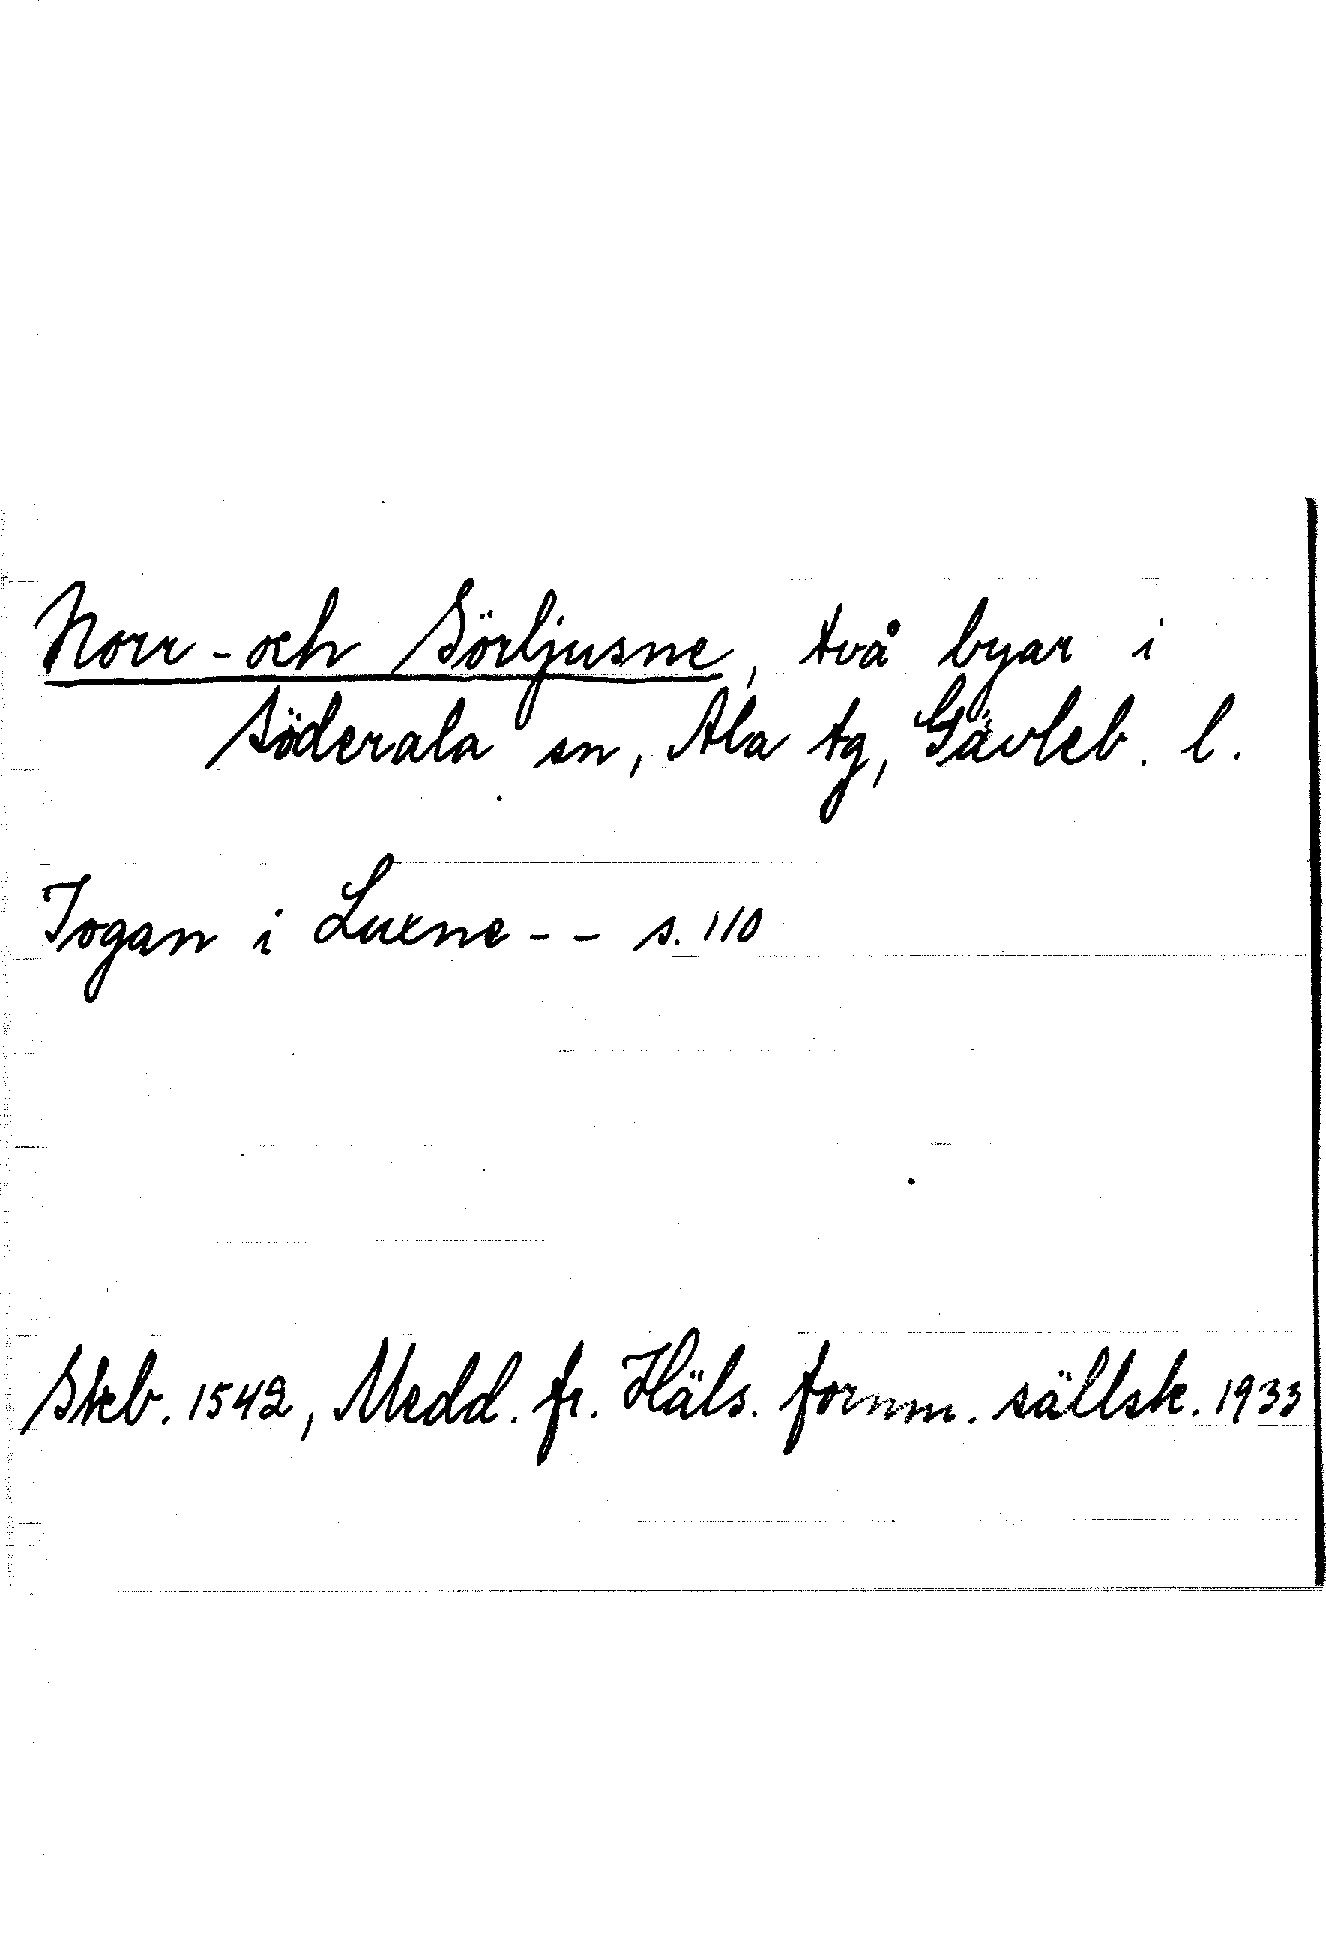 Norr- och Sörljusne, två byar i
Söderala sn, Ala tg, Gävleb. l.
Jogan i Luxne -- s. 110
Skb. 1542, Medd. fr. Häls. fornm. sällsk. 1933